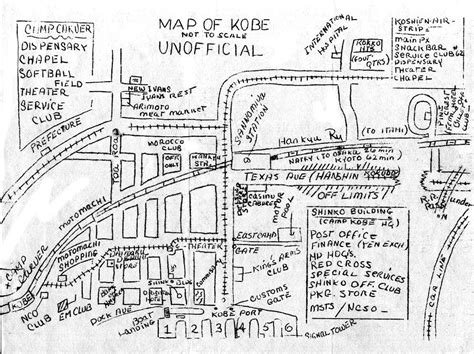 MAP OF KOBE
NOT TO SCALE
UNOFFICIAL
CAMP CARVER
DISPENSARY
CHAPEL
SOFTBALL
FIELD
THEATER
SERVICE
CLUB
PREFECTURE
NEW IVANS
IVANS REST
ARIMOTO
meat market
INTERNATIONAL
HOSPITAL
ROKKO
HTS
(GOV.
QTRS)
KOSHIEN AIR-
STRIP
MAIN PX
SNACK BAR
SERVICE CLUB
DISPENSARY
THEATER
CHAPEL
SANNOMIYA
STATION
TOR ROAD
MOROCCO
CLUB
OFF
ONLY
Hankyu Ry
(TO ITAMI)
KYOTO 62 min
TEXAS AVE (HANSHIN
OFF LIMITS
R.R.
PASS
under
CAR LINE
MOTOMACHI
MOTOMACHI
SHOPPING
CASINO
CABARET
MOTOR
POOL
EASTCAMP
GATE
THEATER
KINGS ARMS
CLUB
CUSTOMS
GATE
SHINKO BUILDING
(CAMP KOBE HQ)
POST OFFICE
FINANCE (YEN EXCH.
MP HDQS.
RED CROSS
SPECIAL SERVICES
SHINKO OFF. CLUB
PKG. STORE
MSTS/NCSO
CAMP
CARVER
KOBE
NCO
CLUB
EM CLUB
DOCK AVE
BOAT
LANDING
KOBE PORT
1 2 3 4 5 6
SIGNAL TOWER